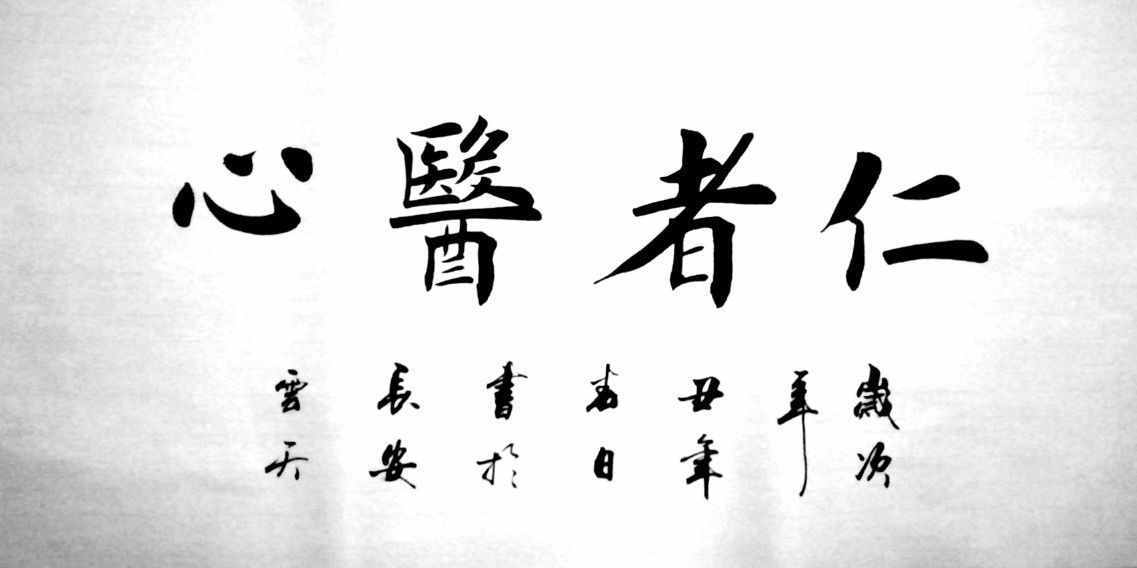 仁者醫心
歲次
辛
丑年
春日
書於
長安
雲天